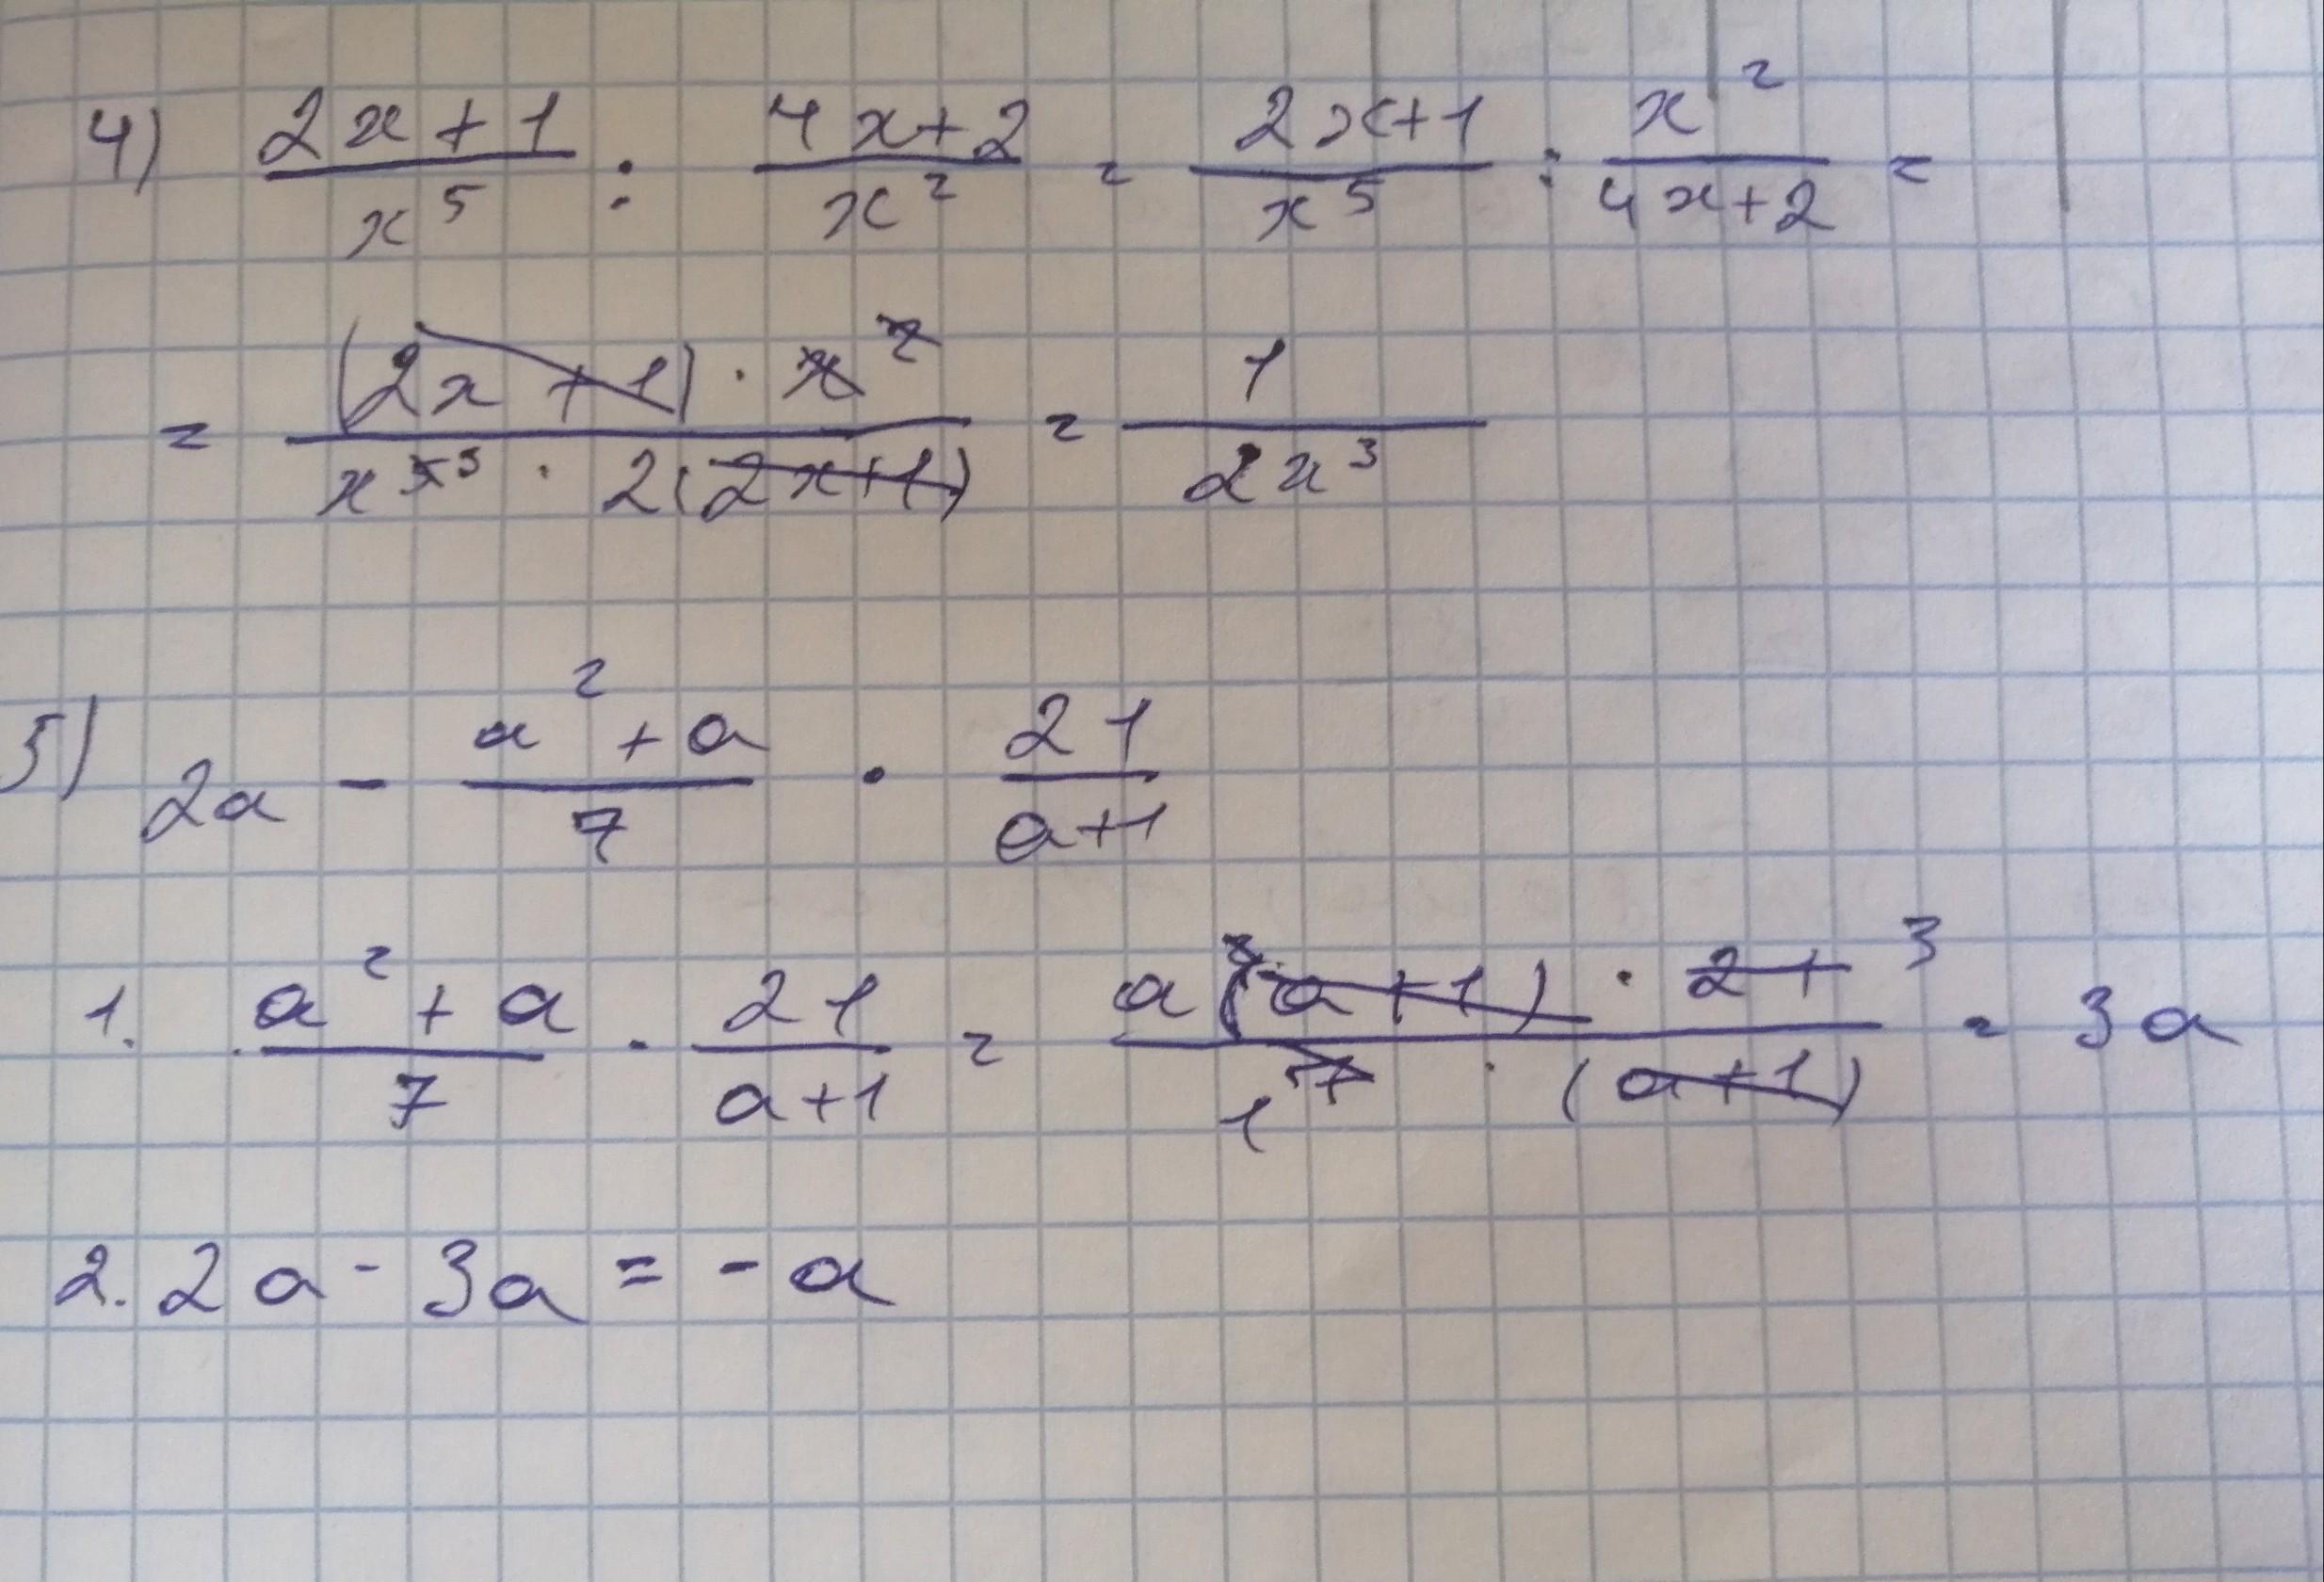 4) (2x+1)/x^5 : (4x+2)/x^2 = (2x+1)/x^5 : x^2/(4x+2) =
= ((2x+1) · x^2)/(x^5 3 · 2(2x+1)) = 1/(2x^3)
5) 2a - (a^2+a)/7 · 21/(a+1)
1. (a^2+a)/7 · 21/(a+1) = (a(a+1) · 21 3)/(1 7 · (a+1)) = 3a
2. 2a - 3a = -a